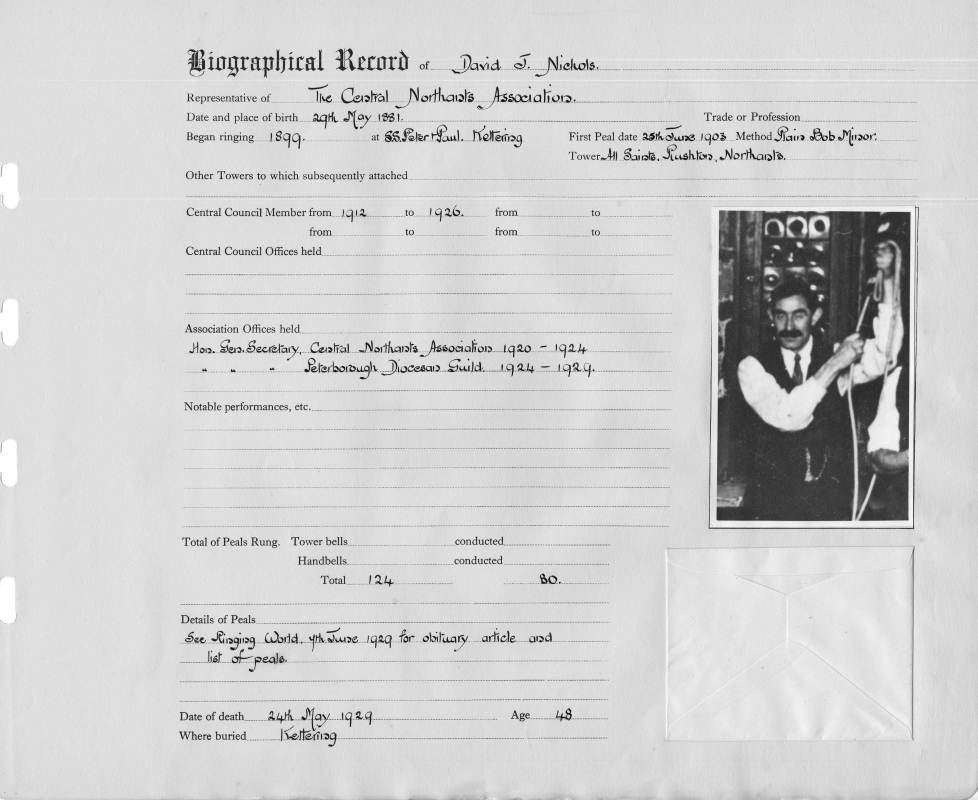 Biographical Record of David J. Nichols.
Representative of The Central Northants Association.
Date and place of birth 29th May 1881. Trade or Profession
Began ringing 1899. at SS. Peter & Paul. Kettering First Peal date 25th June 1903 Method Plain Bob Minor.
Tower All Saints, Rushton, Northants.
Other Towers to which subsequently attached
Central Council Member from 1912 to 1926. from to
from to from to
Central Council Offices held
Association Offices held
Hon. Gen. Secretary, Central Northants Association 1920 - 1924
" " " Peterborough Diocesan Guild. 1924 - 1929.
Notable performances, etc.
Total of Peals Rung. Tower bells conducted
Handbells conducted
Total 124 80.
Details of Peals
See Ringing World, 7th June 1929 for obituary article and
list of peals.
Date of death 24th May 1929 Age 48
Where buried Kettering